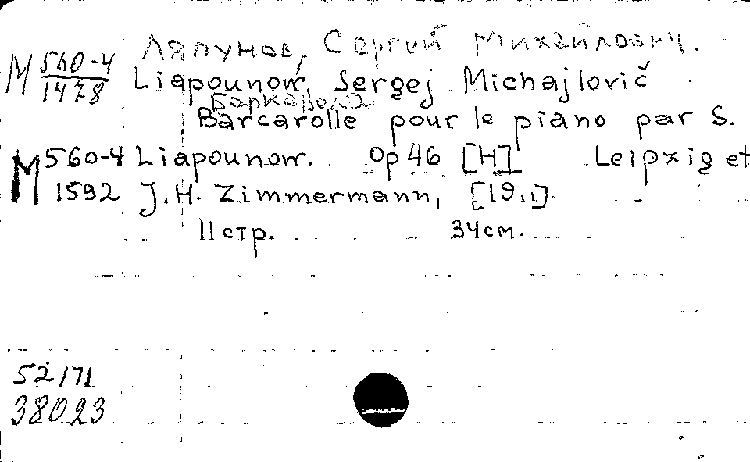 Ляпунов, Сергий Михайлович.
М 560-4/1478 Liapounow, Sergej Michajlovič
Баркарола
Barcarolle pour le piano par S.
М 560-4/1592 Liapounow. Op 46 [Н] Leipzig et
J.H. Zimmermann, [1911].
11 стр. 34 см.
52/71
38023